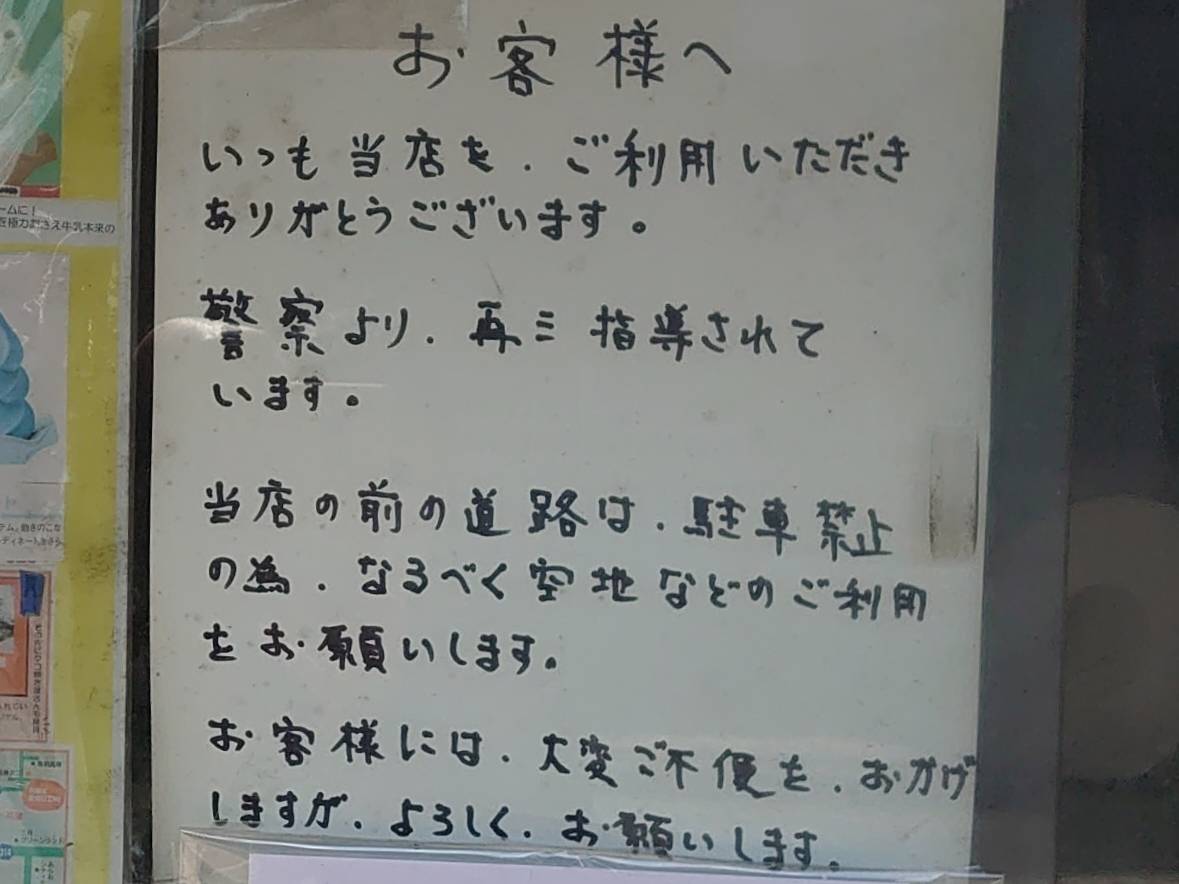 お客様へ
いつも当店を、ご利用いただき
ありがとうございます。
警察より、再三指導されて
います。
当店の前の道路は、駐車禁止
の為、なるべく空地などのご利用
をお願いします。
お客様には、大変ご不便を、おかけ
しますが、よろしく、お願いします。
ームに!